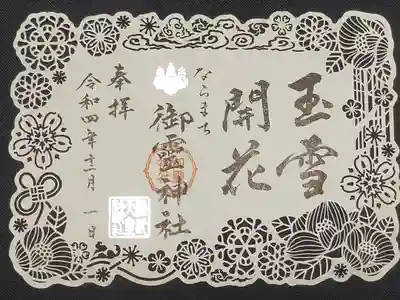 玉雪
開花
ならまち
御霊神社
奉拝
令和四年十二月一日